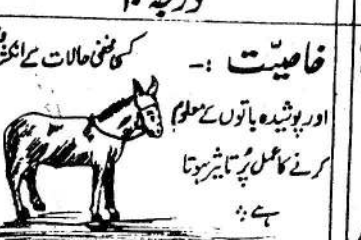 درجہ
خاصیّت :- کسی مخفی حالات کے
اور پوشیدہ باتوں کے معلوم
کرنے کا عمل پُر تاثیر ہوتا
ہے ؞